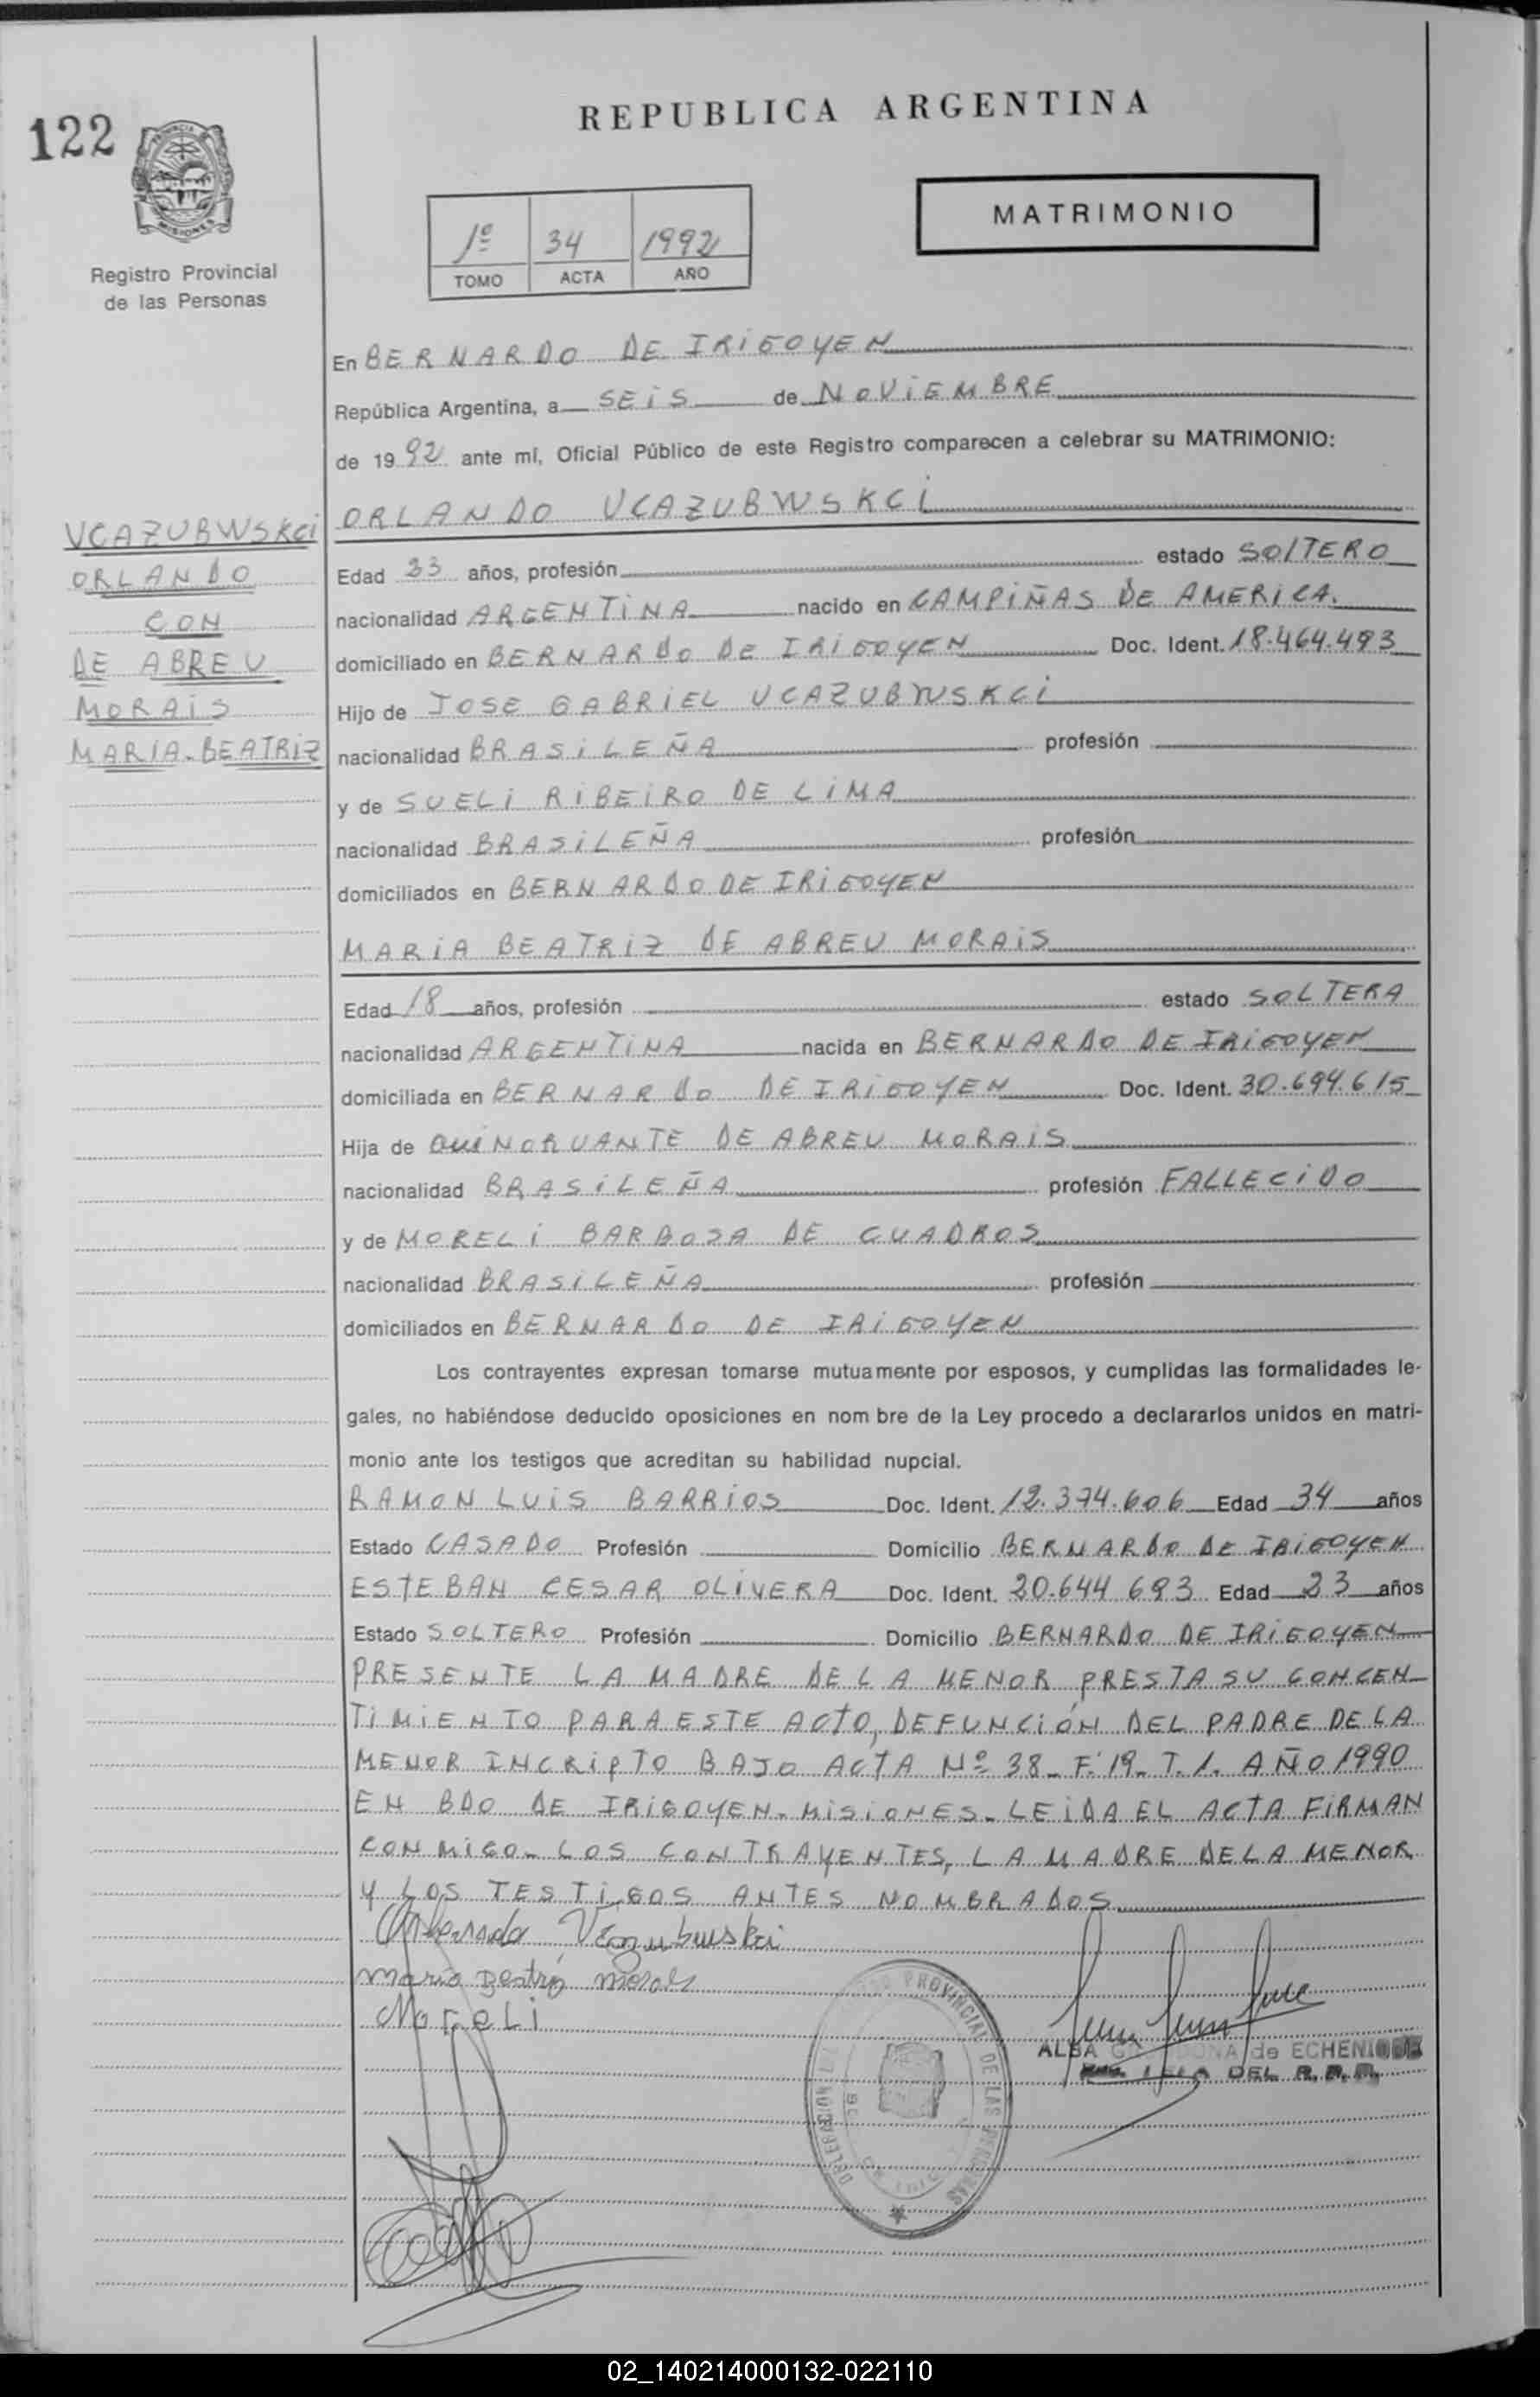 122
REPUBLICA ARGENTINA
MATRIMONIO
1º 34 1992
TOMO ACTA AÑO
PROVINCIA DE
MISIONES
Registro Provincial
de las Personas
En BERNARDO DE IRIGOYEN
República Argentina, a SEIS de NOVIEMBRE
de 1992 ante mí, Oficial Público de este Registro comparecen a celebrar su MATRIMONIO:
VCAZUBWSKCI
ORLANDO
CON
DE ABREU
MORAIS
MARIA-BEATRIZ
ORLANDO VCAZUBWSKCI
Edad 23 años, profesión estado SOLTERO
nacionalidad ARGENTINA nacido en CAMPIÑAS DE AMERICA.
domiciliado en BERNARDO DE IRIGOYEN Doc. Ident. 18.464.493
Hijo de JOSE GABRIEL VCAZUBWSKCI
nacionalidad BRASILEÑA profesión
y de SUELI RIBEIRO DE LIMA
nacionalidad BRASILEÑA profesión
domiciliados en BERNARDO DE IRIGOYEN
MARIA BEATRIZ DE ABREU MORAIS
Edad 18 años, profesión estado SOLTERA
nacionalidad ARGENTINA nacida en BERNARDO DE IRIGOYEN
domiciliada en BERNARDO DE IRIGOYEN Doc. Ident. 30.694.615
Hija de DE ABREU MORAIS
nacionalidad BRASILEÑA profesión FALLECIDO
y de MORELI BARBOSA DE CUADROS
nacionalidad BRASILEÑA profesión
domiciliados en BERNARDO DE IRIGOYEN
Los contrayentes expresan tomarse mutuamente por esposos, y cumplidas las formalidades le-
gales, no habiéndose deducido oposiciones en nom bre de la Ley procedo a declararlos unidos en matri-
monio ante los testigos que acreditan su habilidad nupcial.
RAMON LUIS BARRIOS Doc. Ident. 12.374.606 Edad 34 años
Estado CASADO Profesión Domicilio BERNARDO DE IRIGOYEN
ESTEBAN CESAR OLIVERA Doc. Ident. 20.644 693 Edad 23 años
Estado SOLTERO Profesión Domicilio BERNARDO DE IRIGOYEN
PRESENTE LA MADRE DE LA MENOR PRESTA SU CONCEN
TIMIENTO PARA ESTE ACTO, DEFUNCIÓN DEL PADRE DE LA
MENOR INCRIPTO BAJO ACTA Nº 38_ F.19_ T.1. AÑO 1990
EN BDO DE IRIGOYEN. MISIONES_ LEIDA EL ACTA FIRMAN
CON MIGO_ LOS CONTRAYENTES, LA MADRE DE LA MENOR
Y LOS TESTIGOS ANTES NOMBRADOS
maria Beatriz morais
Moreli
PROVINCIAL DE LAS PERSONAS
ALBA de ECHENIQUE
DEL R. P. P.
02_140214000132-022110